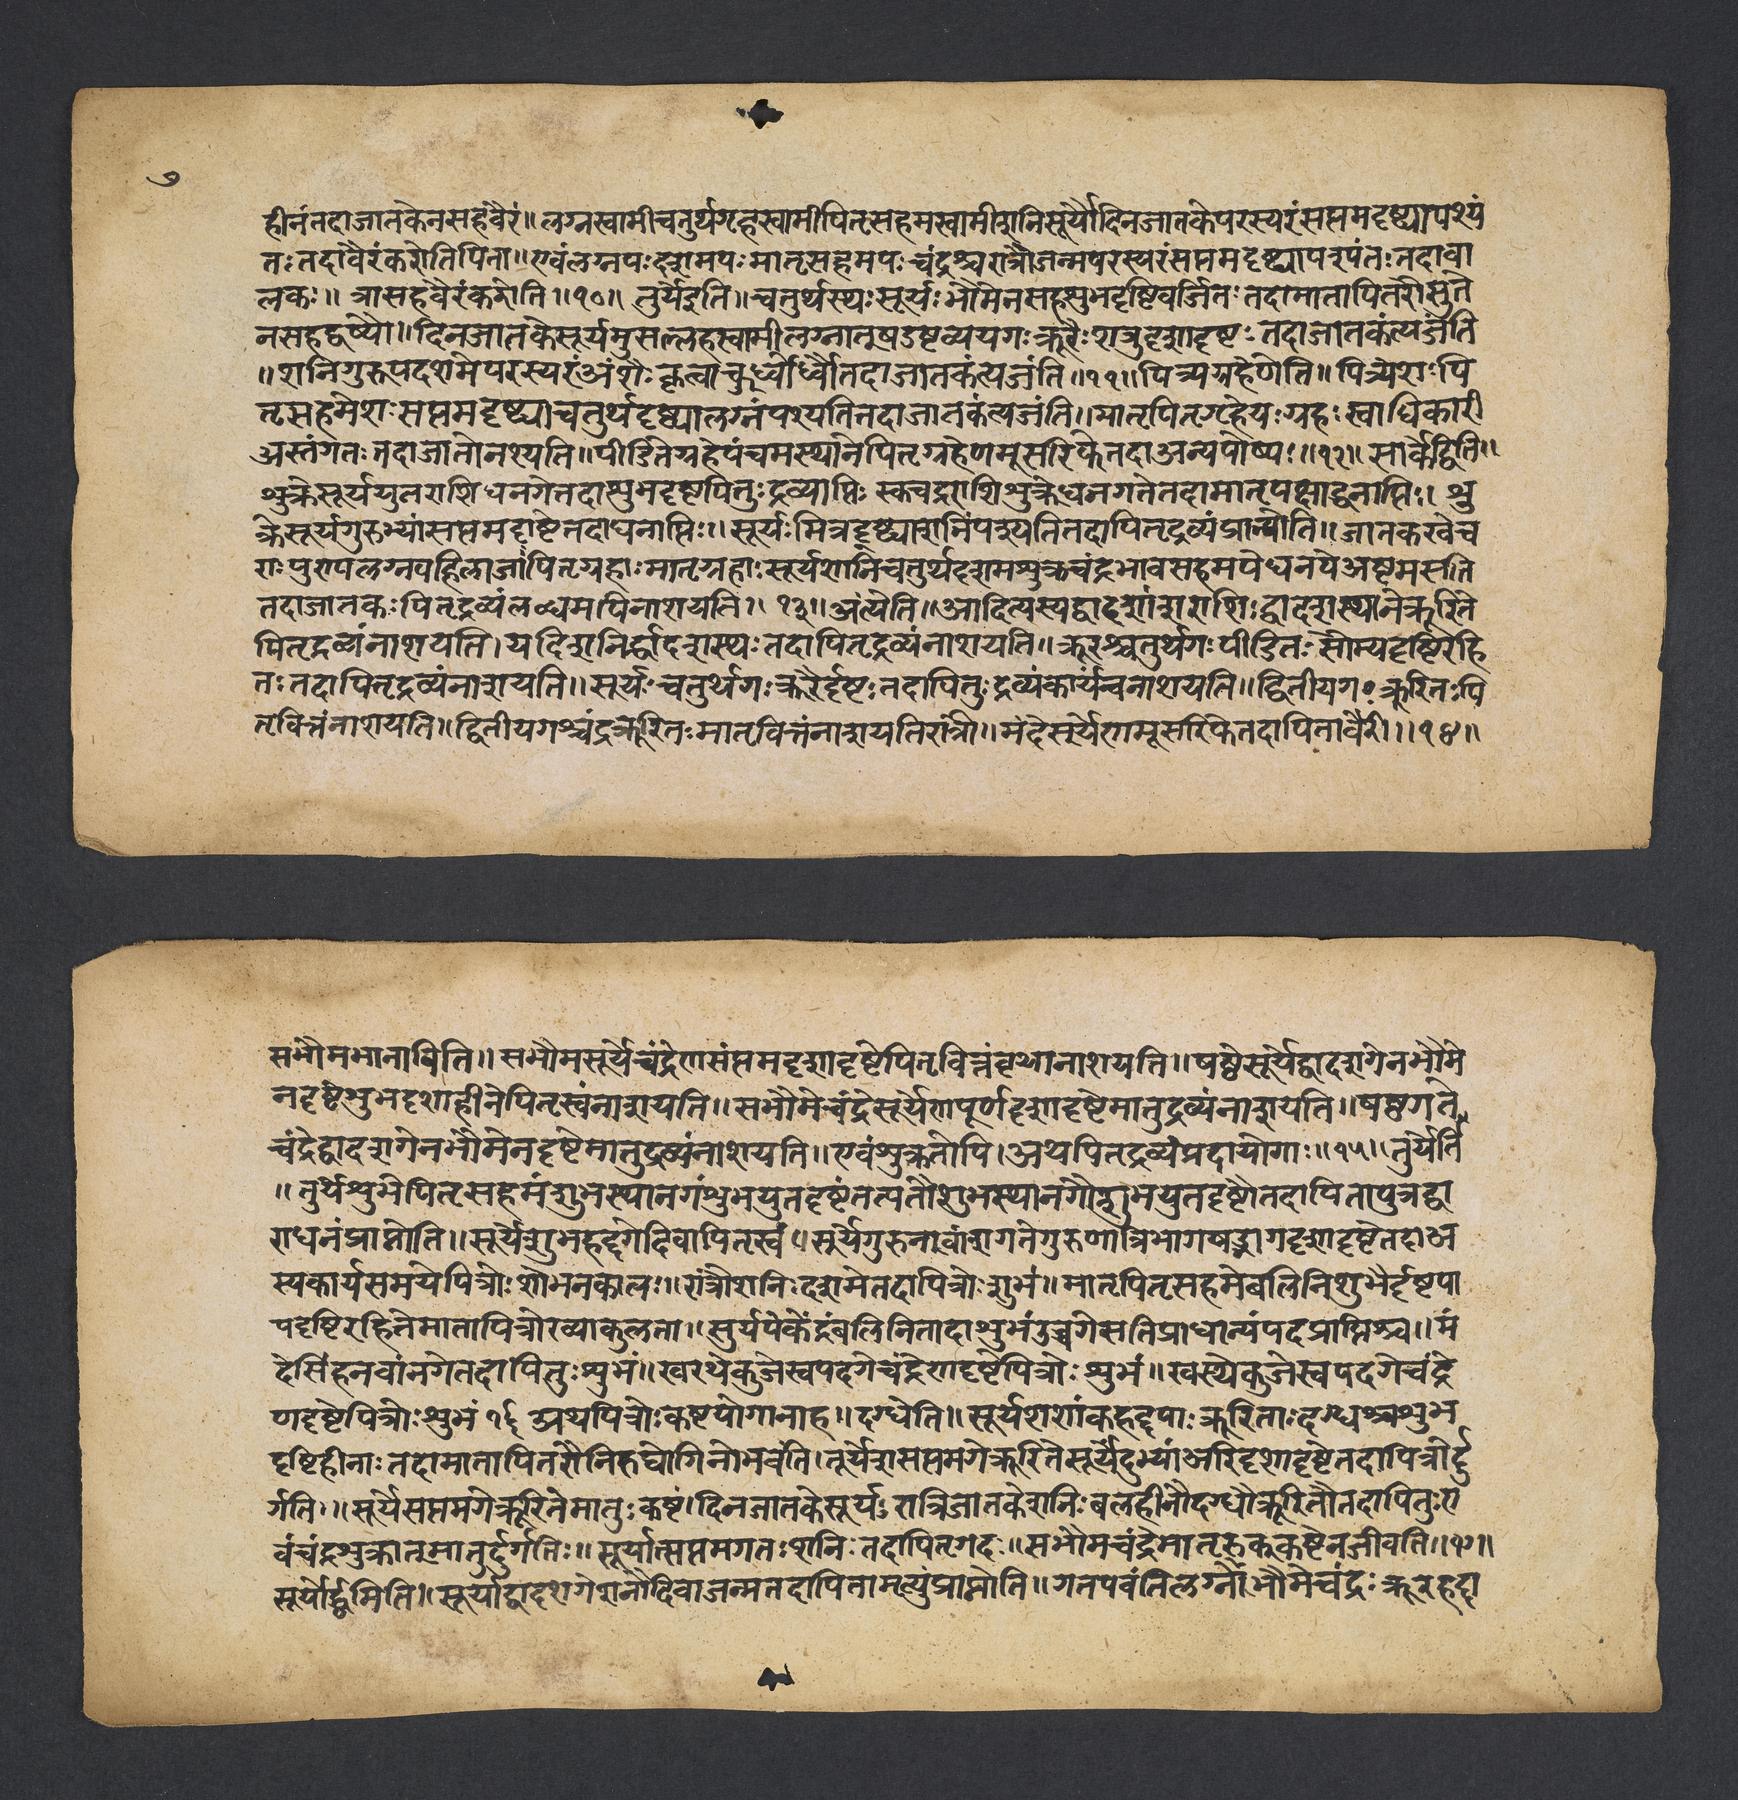 ७
हीनंतदाजातकेनसहवैरं॥लग्नस्वामीचतुर्थगृहस्वामीपितृसहमस्वामीशनिसूर्यौदिनजातकेपरस्परंसप्तमदृष्ट्यापश्यं
तःतदावैरंकरोतिपिता॥एवंलग्नपःदशमपःमातृसहमपःचंद्रश्चरात्रौजन्मपरस्परंसप्तमदृष्ट्यापश्यंतःतदाबा
लकः॥त्रासहवैरंकरोति॥१०॥तुर्यइति॥चतुर्थस्थःसूर्यःभौमेनसहसुभदृष्टिवर्जितःतदामातापितरौसुते
नसहद्वष्यौ॥दिनजातकेसूर्यमुसल्लहस्वामीलग्नात्षडष्टव्ययगःक्रूरैःशत्रुदृशादृष्टःतदाजातकंत्यजंति
॥शनिगुरुपदशमेपरस्परंअंशैःकृत्वाचुर्ध्वोर्ध्वौतदाजातकंत्यजंति॥११॥पित्र्यग्रहेणेति॥पित्र्येशःपि
तृसहमेशःसप्तमदृष्ट्याचतुर्थदृष्ट्यालग्नंपश्यतितदाजातकंत्यजंति॥मातृपितृगृहेयःग्रहःस्वाधिकारी
अस्तंगतःतदाजातोनश्यति॥पीडितेग्रहेपंचमस्थानेपितृग्रहेणमूसरिफेतदाअन्यपोष्यः॥१२॥सार्केद्विति॥
शुक्रेसूर्ययुतराशिधनगेतदासुभदृष्टपितुःद्रव्याप्तिःस्कचद्रराशिशुक्रेधनगतेतदामातृपक्षाद्धनाप्तिः॥शु
क्रेसूर्यगुरुभ्यांसप्तमदृष्टेतदाधनाप्तिः॥सूर्यःमित्रदृष्ट्याशनिंपश्यतितदापितृद्रव्यंप्राप्नोति॥जातकखेच
राःपुरुषलग्नपहिलाजापितृग्रहाःमातृग्रहाःसूर्यशनिचतुर्थदशमशुक्रचंद्रभावसहमपेधनपेअष्टमसति
तदाजातकःपितृद्रव्यंलब्धमपिनाशयति॥१३॥अंत्येति॥आदित्यस्यद्वादशांशराशिःद्वादशस्थानेक्रूरिते
पितृद्रव्यंनाशयति।यदिशनिर्द्वादशस्थःतदापितृद्रव्यंनाशयति॥क्रूरश्चतुर्थगःपीडितःसौम्यदृष्टिरहि
तःतदापितृद्रव्यंनाशयति॥सूर्यःचतुर्थगःक्रूरैर्दृष्टःतदापितुःद्रव्यंकार्यंचनाशयति॥द्वितीयगःक्रूरितःपि
तृवित्तंनाशयति॥द्वितीयगश्चंद्रक्रूरितःमातृवित्तंनाशयतिरात्रौ॥मंदेसूर्येणमूसरिफेतदापितावैरी॥१४॥
सभौमभानाविति॥सभौमसूर्येचंद्रेणसंप्तमदृशादृष्टेपितृवित्तंवृथानाशयति॥षष्ठेसूर्येद्वादशगेनभौमे
नदृष्टेशुभदृशाहीनेपितृस्वंनाशयति॥सभौमेचंद्रेसूर्येणपूर्णदृशादृष्टेमातुद्रव्यंनाशयति॥षष्ठगते
चंद्रेद्वादशगेनभौमेनदृष्टेमातुद्रव्यंनाशयति॥एवंशुक्रतोपि।अथपितृद्रव्यंप्रदायोगाः॥१५॥तुर्येति
॥तुर्थेशुभेपितृसहमंशुभस्थानगंशुभयुतदृष्टंतत्पतौशुभस्थानगौत्शुभयुतदृष्टौतदापितापुत्रद्वा
राधनंप्राप्नोति॥सूर्येशुभहद्दगेदिवापितृस्वं॥सूर्येगुरुनावांशगतेगुरुणात्रिभागषड्भागदृशादृष्टेतदाअ
स्यकार्यसमयेपित्रोःशोभनकालः॥रात्रौशनिःदशमेतदापित्रोःशुभं॥मातृपितृसहमेबलिनिशुभैर्दृष्टपा
पदृष्टिरहितेमातापित्रोरव्याकुलता॥सुर्यपेकेंद्रंबलिनितादाशुभंउच्चगेसतिप्राधान्यंपदप्राप्तिश्च॥मं
देसिंहनवांनगेतदापितुःशुभं॥खरथेकुजेस्वपदगेचंद्रेणदृष्टेपित्रोःशुभं॥खस्थेकुजेस्वपदगेचंद्रे
णदृष्टेपित्रोःशुभं१६अथपित्रोःकष्टयोगानाह॥दग्धेति॥सूर्यशशांकहद्दपाःक्रूरिताःदग्धाश्चशुभ
दृष्टिहीनाःतदामातापितरौनिरुद्योगिनोभवंति।तूर्येशसप्तमगेक्रूरितेसूर्येंदुभ्यांअरिदृशादृष्टेतदापित्रोर्दु
र्गतिः॥सूर्येसप्तमगेक्रूरितेमातुःकष्टं।दिनजातकेसूर्यःरात्रिजातकेशनिःबलहीनौदग्धौक्रूरितौतदापितुःए
वंचंद्रशुक्रात्मातुर्दुर्गतिः॥सूर्यात्सप्तमगतःशनिःतदापितृगदः॥सभौमचंद्रेमातृरुक्कष्टेनजीवति॥१७॥
सूर्यार्द्धमिति।सूर्याद्वादशगेशनौदिवाजन्मतदापितामृत्युंप्राप्नोति॥गतपवंतिलग्नेभौमेचंद्रःक्रूरहद्दा